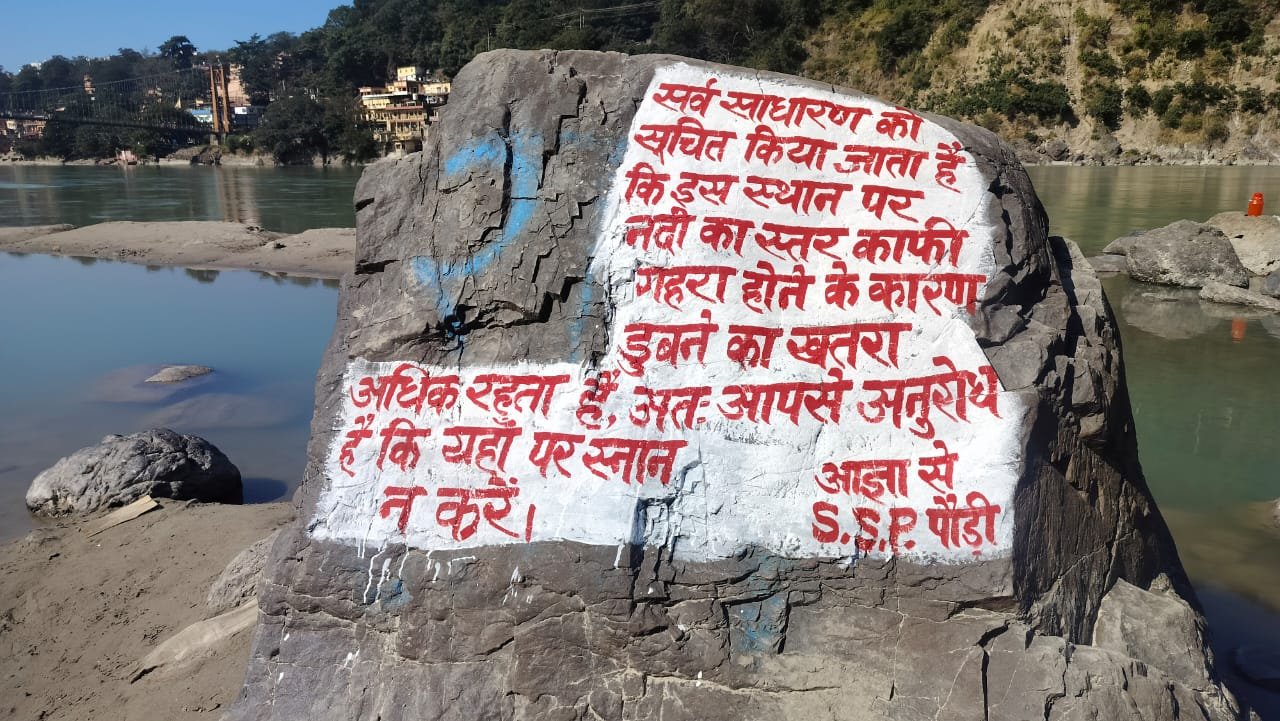 सर्व साधारण को
सूचित किया जाता है
कि इस स्थान पर
नदी का स्तर काफी
गहरा होने के कारण
डुबने का खतरा
अधिक रहता है, अतः आपसे अनुरोध
है कि यहाँ पर स्नान
न करें।
आज्ञा से
S.S.P. पौड़ी